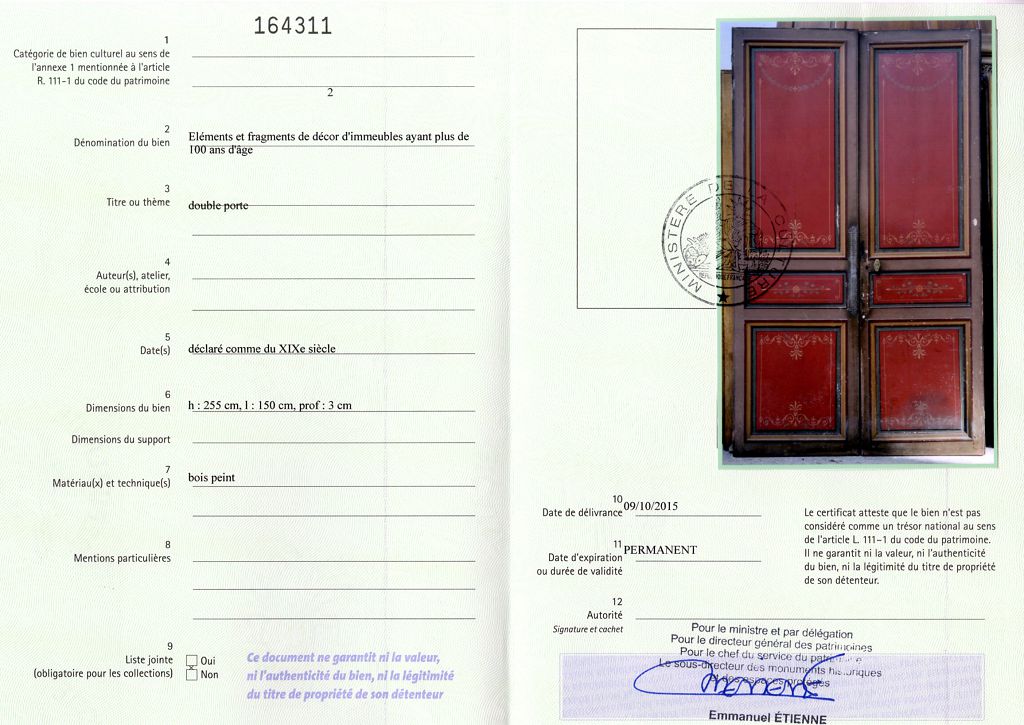 164311
1
Catégorie de bien culturel au sens de
l'annexe 1 mentionnée à l'article
R. 111-1 du code du patrimoine
2
2
Dénomination du bien
Eléments et fragments de décor d'immeubles ayant plus de
100 ans d'âge
3
Titre ou thème
double porte
4
Auteur(s), atelier,
école ou attribution
5
Date(s)
déclaré comme du XIXe siècle
6
Dimensions du bien
h : 255 cm, l : 150 cm, prof : 3 cm
Dimensions du support
7
Matériau(x) et technique(s)
bois peint
8
Mentions particulières
9
Liste jointe
(obligatoire pour les collections)
Oui
Non
Ce document ne garantit ni la valeur,
ni l'authenticité du bien, ni la légitimité
du titre de propriété de son détenteur
MINISTERE DE LA CULTURE
10
Date de délivrance
09/10/2015
11
Date d'expiration
ou durée de validité
PERMANENT
12
Autorité
Signature et cachet
Le certificat atteste que le bien n'est pas
considéré comme un trésor national au sens
de l'article L. 111-1 du code du patrimoine.
Il ne garantit ni la valeur, ni l'authenticité
du bien, ni la légitimité du titre de propriété
de son détenteur.
Pour le ministre et par délégation
Pour le directeur général des patrimoines
Pour le chef du service du patrimoine
Le sous-directeur des monuments historiques
et des espaces protégés
Emmanuel ÉTIENNE